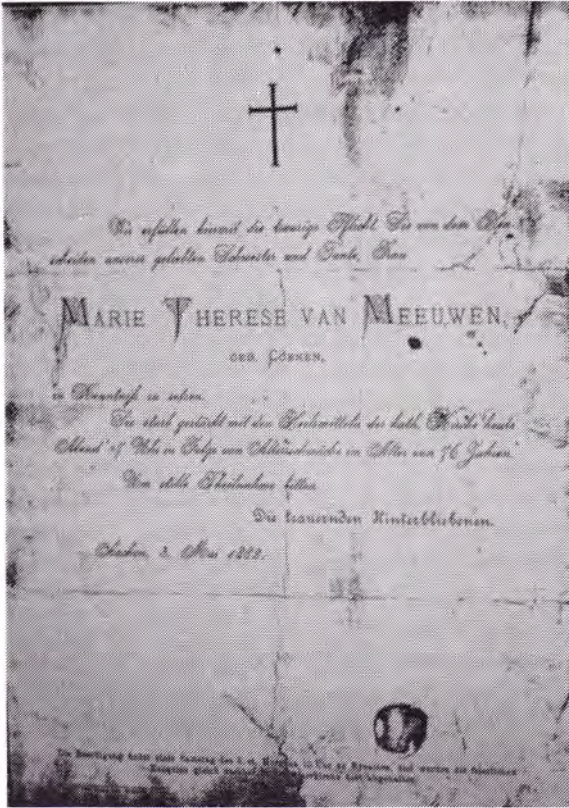 Wir erfüllen hiermit die traurige Pflicht Sie von dem Hin-
scheiden unserer geliebten Schwester und Tante, Frau
MARIE THERESE VAN MEEUWEN,
GEB. CÖENEN,
in Kenntniß zu setzen.
Sie starb gestärkt mit den Heilsmitteln der kath. Kirche heute
Abend Uhr in Folge von Altersschwäche im Alter von 76 Jahren.
Um stille Theilnahme bitten
Die trauernden Hinterbliebenen.
Aachen, 2. Mai
Die Beerdigung findet statt Samstag den 5. ct. Uhr
gleich